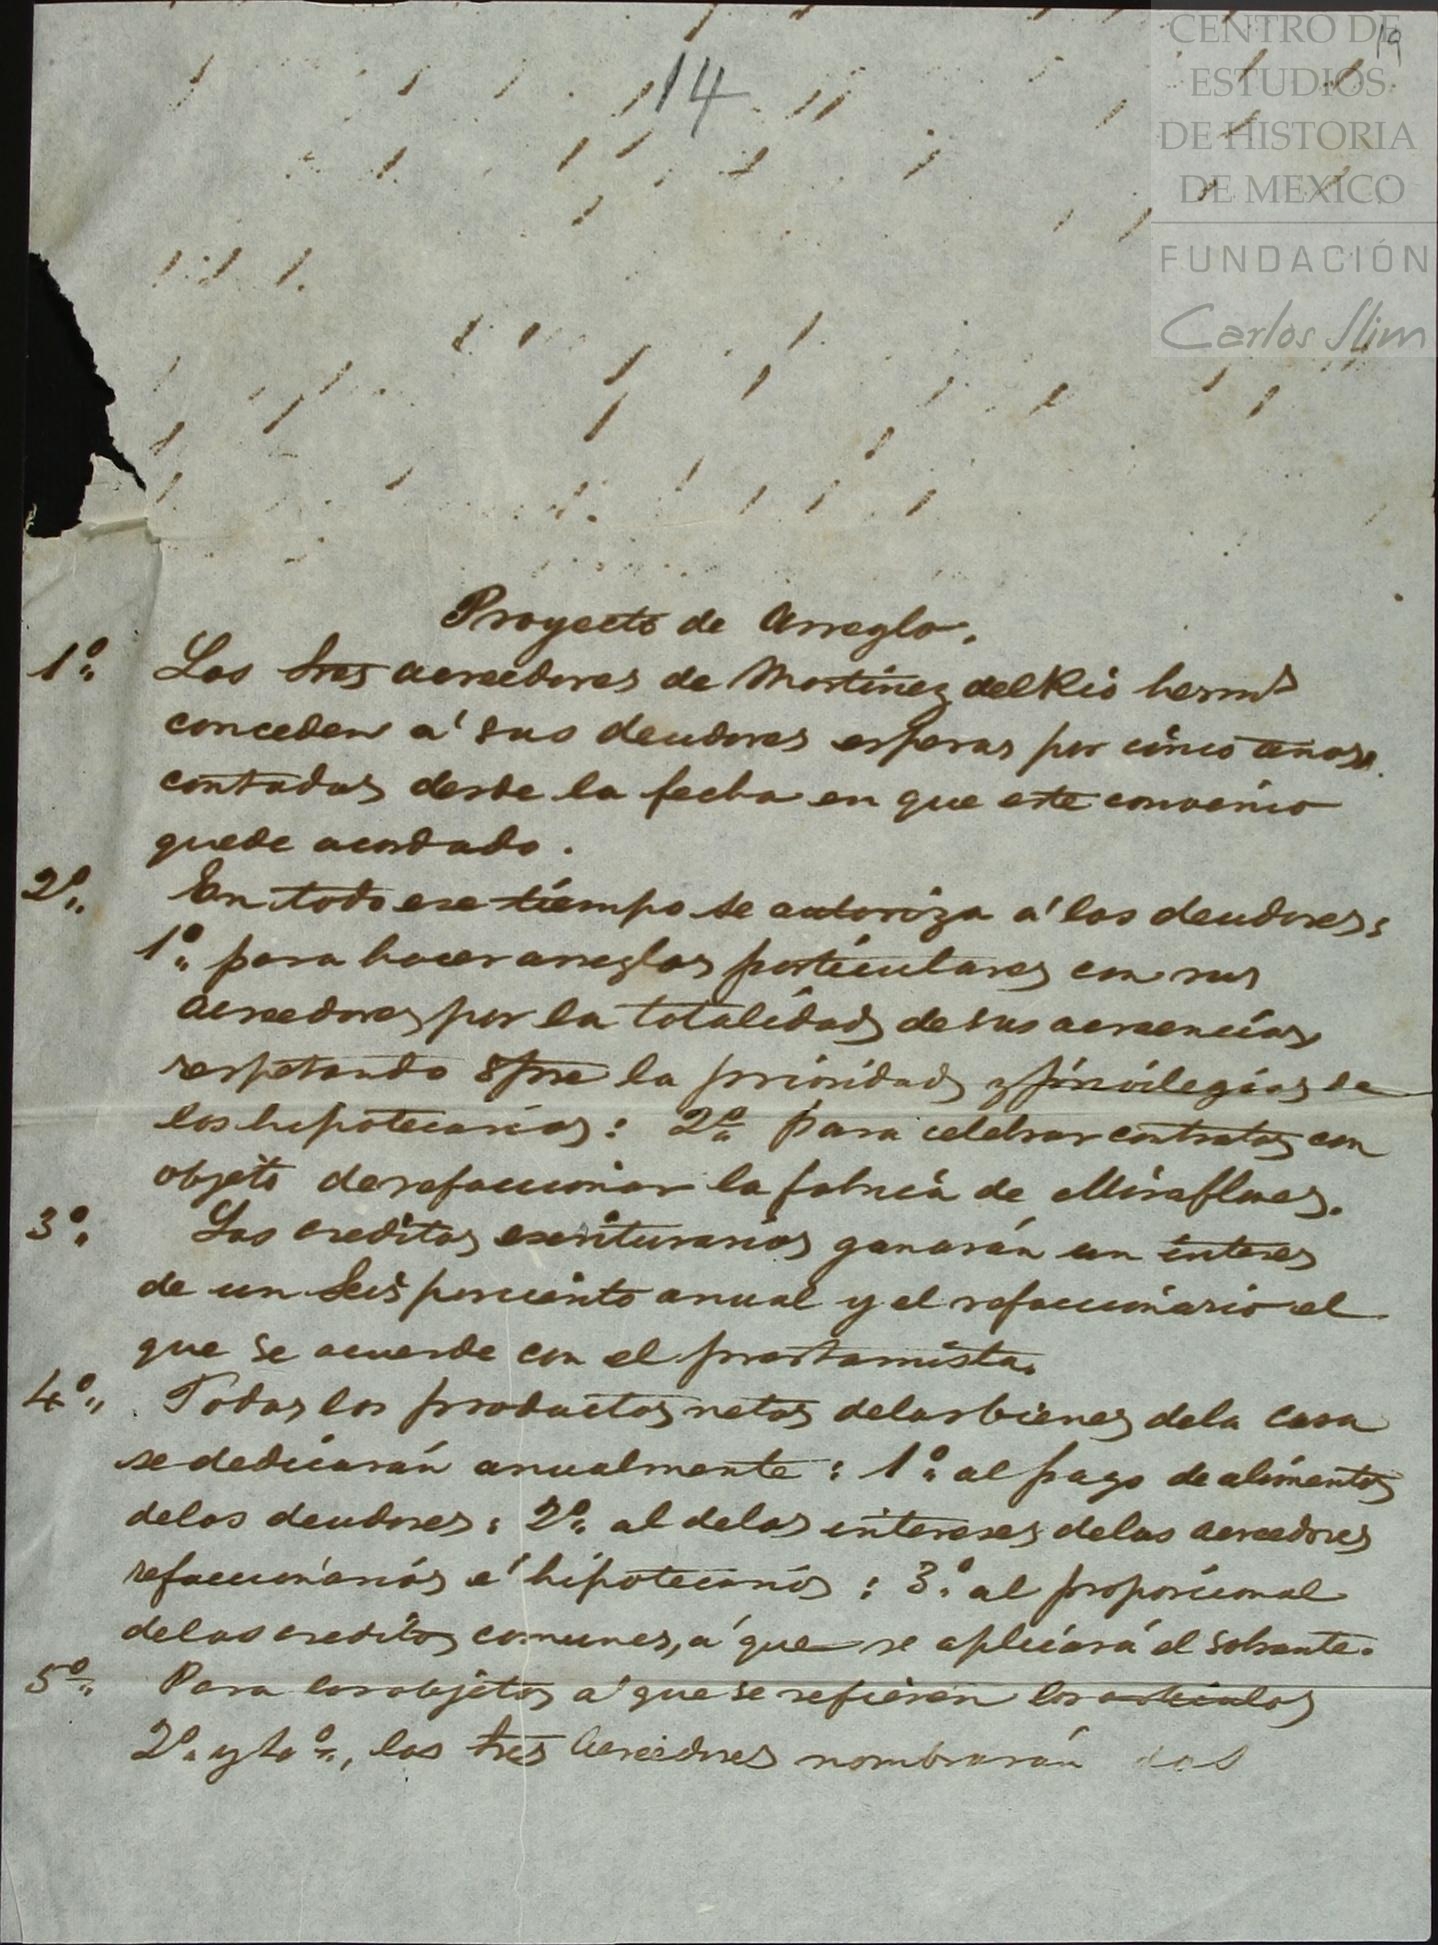 CENTRO DE
ESTUDIOS
DE HISTORIA
DE MEXICO
FUNDACIÓN
Carlos Slim
19
14
Proyecto de Arreglo.
1º. Los tres acreedores de Martinez del Rio herms
conceden á sus deudores esperas por cinco años,
contados desde la fecha en que este convenio
quede acordado.
2º. En todo ese tiempo se autoriza á los deudores:
1º. para hacer arreglos particulares con sus
acreedores por la totalidad de sus acreencias,
respetando spre la prioridad y privilegios de
los hipotecarios: 2º. para celebrar contratos con
objeto de refaccionar la fabrica de Miraflores.
3º. Los creditos escriturarios ganarán un interes
de un seis por ciento anual y el refaccionario el
que se acuerde con el prestamista.
4º. Todos los productos netos de los bienes de la casa
se dedicarán anualmente: 1º. al pago de alimentos
de los deudores: 2º. al de los intereses de los acreedores
refaccionarios é hipotecarios: 3º. al proporcional
de los creditos comunes, á que se aplicará el sobrante.
5º. Para los objetos á que se refieren los articulos
2º. y 4º., los tres acreedores nombrarán dos